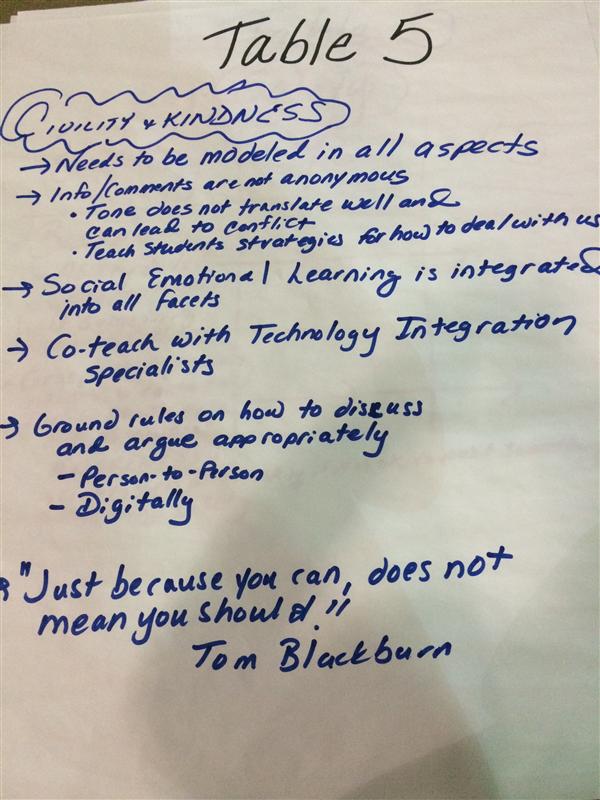 Table 5
CIVILITY & KINDNESS
→ Needs to be modeled in all aspects
→ Info/Comments are not anonymous
• Tone does not translate well and
can lead to conflict
• Teach Students strategies for how to deal with us
→ Social Emotional Learning is integrated
into all facets
→ Co-teach with Technology Integration
Specialists
→ Ground rules on how to discuss
and argue appropriately
- Person-to-Person
- Digitally
"Just because you can, does not
mean you should."
Tom Blackburn